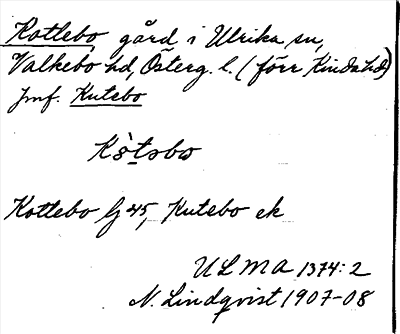 Kotlebo, gård i Ulrika sn,
Valkebo hd, Österg. l. (förr Kinda hd)
Jmf. Kutebo
Kottebo Gj 45, Kutebo ek
ULMA 1374:2
N. Lindqvist 1907-08